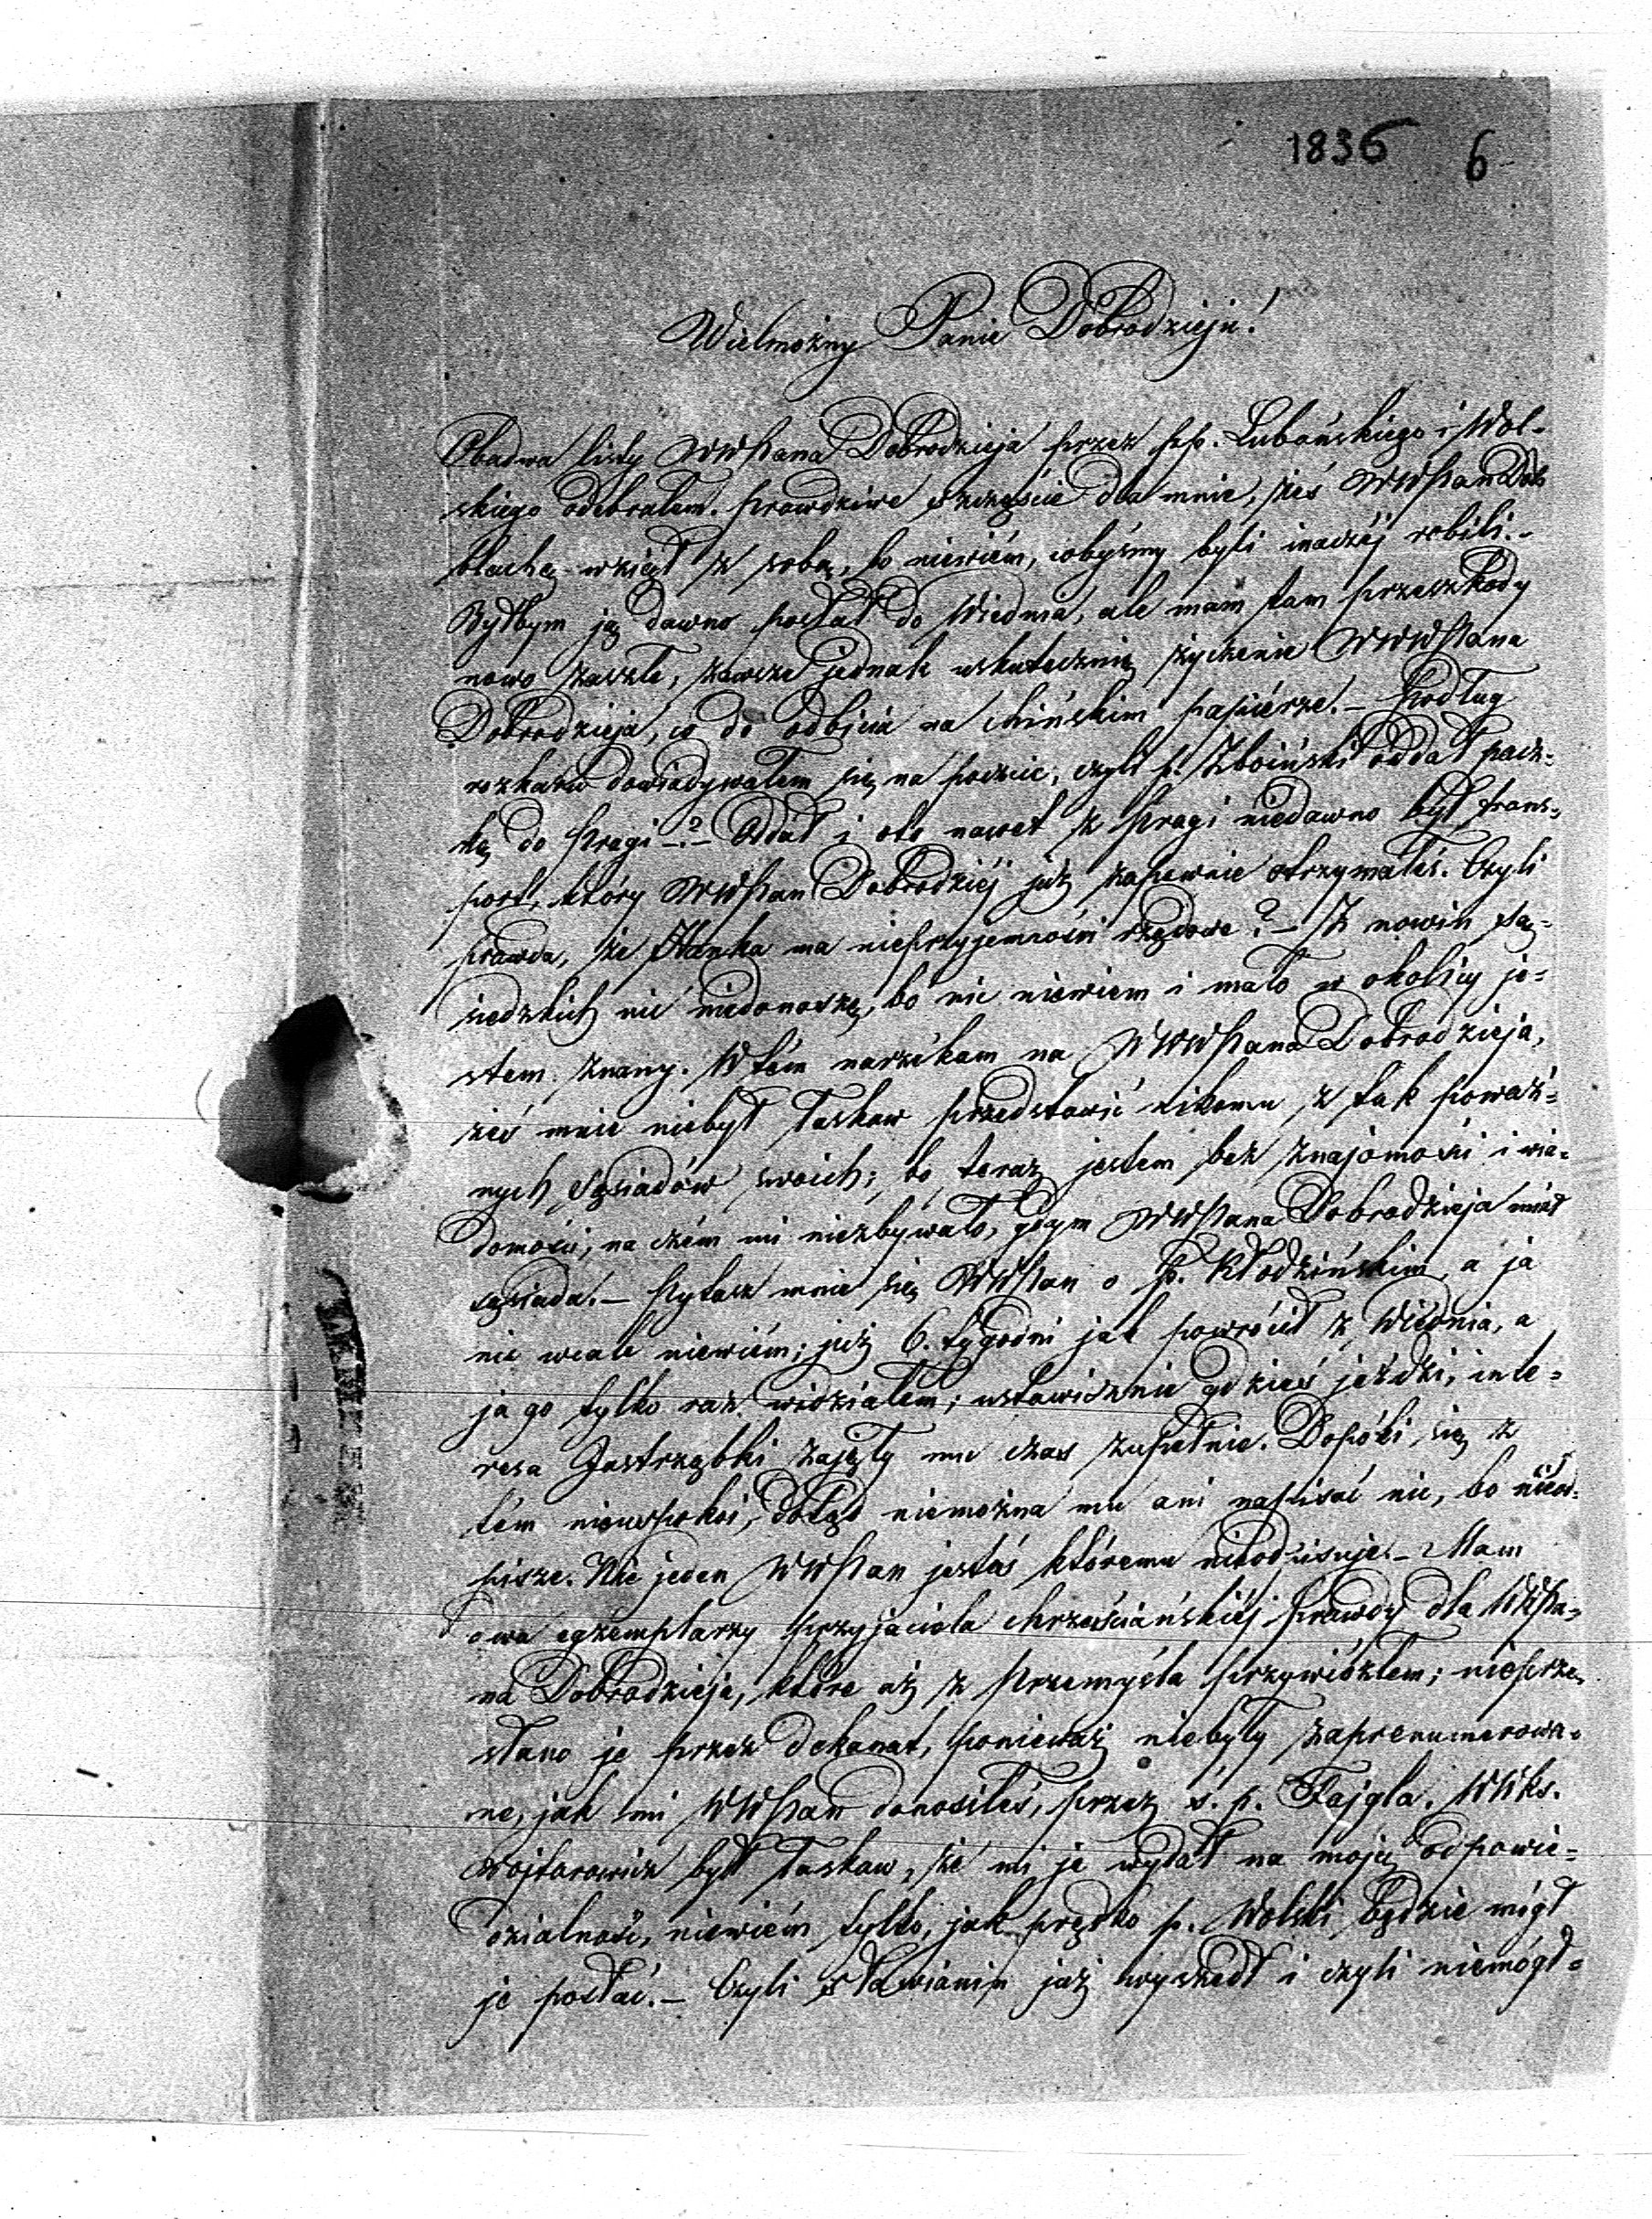 1836 6
Wielmożny Panie Dobrodzieju!
Obadwa listy WWPana Dobrodzieja przez pp. Lubańskiego i Wol-
skiego odebrałem. Prawdziwe szczęście dla mnie, żeś WWPan Dob
blachę wziął z sobą, bo niewiém, cobyśmy byli inaczéj robili.-
Byłbym ją dawno posłał do Wiednia, ale mam tam przeszkody
nowo zaszłe, zawsze jednak uskutecznię życzenie WWWPana
Dobrodzieja, co do odbicia na chińskim papiérze.- Podług
rozkazu dowiadywałem się na poczcie, czyli p. Zboiński oddał pacz-
kę do Pragi -?- Oddał i oto nawet z Pragi niedawno był trans-
port, który WWPan Dobrodziéj już zapewnie otrzymałeś. Czyli
prawda, że Hanka ma nieprzyjemności rządowe? - Z nowin są-
siedzkich nic niedonoszę, bo nic niewiem i mało w okolicy je-
stem znany. W tém narzékam na WWWPana Dobrodzieja,
żeś mnie niebył łaskaw przedstawić nikomu z tak poważ-
nych Sąsiadów swoich; bo teraz jestem bez znajomości i wia-
domości, na czém mi niezbywało, gdym WWPana Dobrodzieja miał
sąsiada.- Pytasz mnie się WWPan o p. Kłodzińskim, a ja
nic wcale niewiém; już 6. tygodni jak powrócił z Wiednia, a
ja go tylko raz widziałem; ustawicznie gdzieś jeździ, inte-
resa Jastrząbki zajęły mu czas zupełnie. Dopóki się z
tém nieuspokoi, dotąd niemożna mu ani napisać nic, bo nieod-
pisze. Nie jeden WWPan jesteś któremu nieodpisuje.- Mam
dwa egzemplarzy przyjaciela chrześciańskiéj prawdy dla WWPa-
na Dobrodzieja, które aż z Przemyśla przywiózłem; nieprze-
słano je przez dekanat, ponieważ niebyły zaprenumerowa-
ne, jak mi WWPan donosiłeś, przez ś. p. Fajgla. WWks.
Wojtarowicz był łaskaw, że mi je wydał na moję odpowie-
dzialność, niewiém tylko, jak prędko p. Wolski będzie mógł
je posłać.- Czyli Sławianin już wyszedł i czyli niemógł-